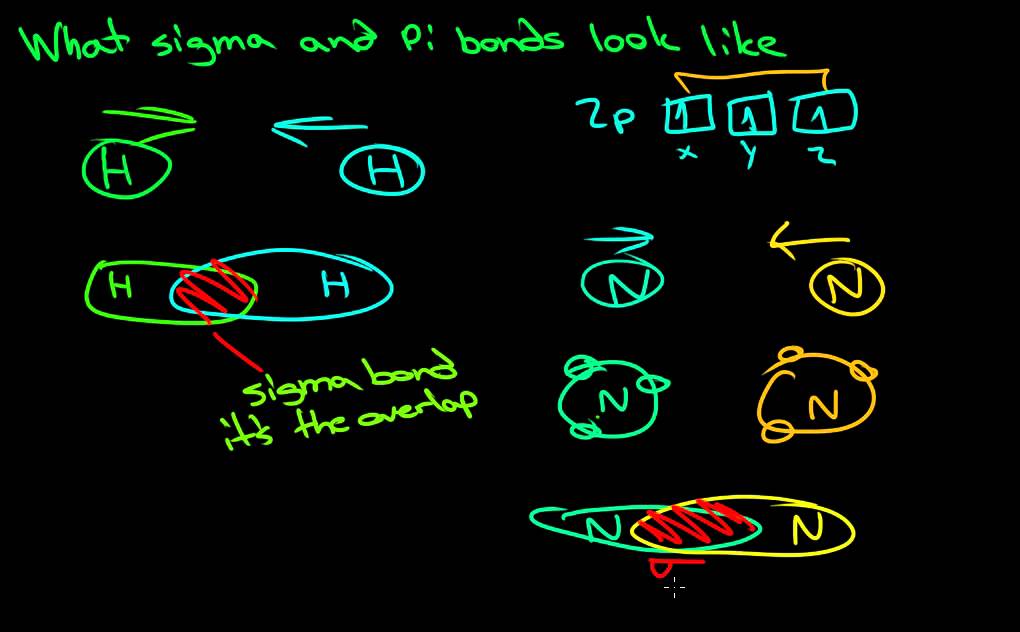 What sigma and Pi bonds look like
2p 1 1 1
x y z
H H
H H
N N
sigma bond
it's the overlap
N N
N N